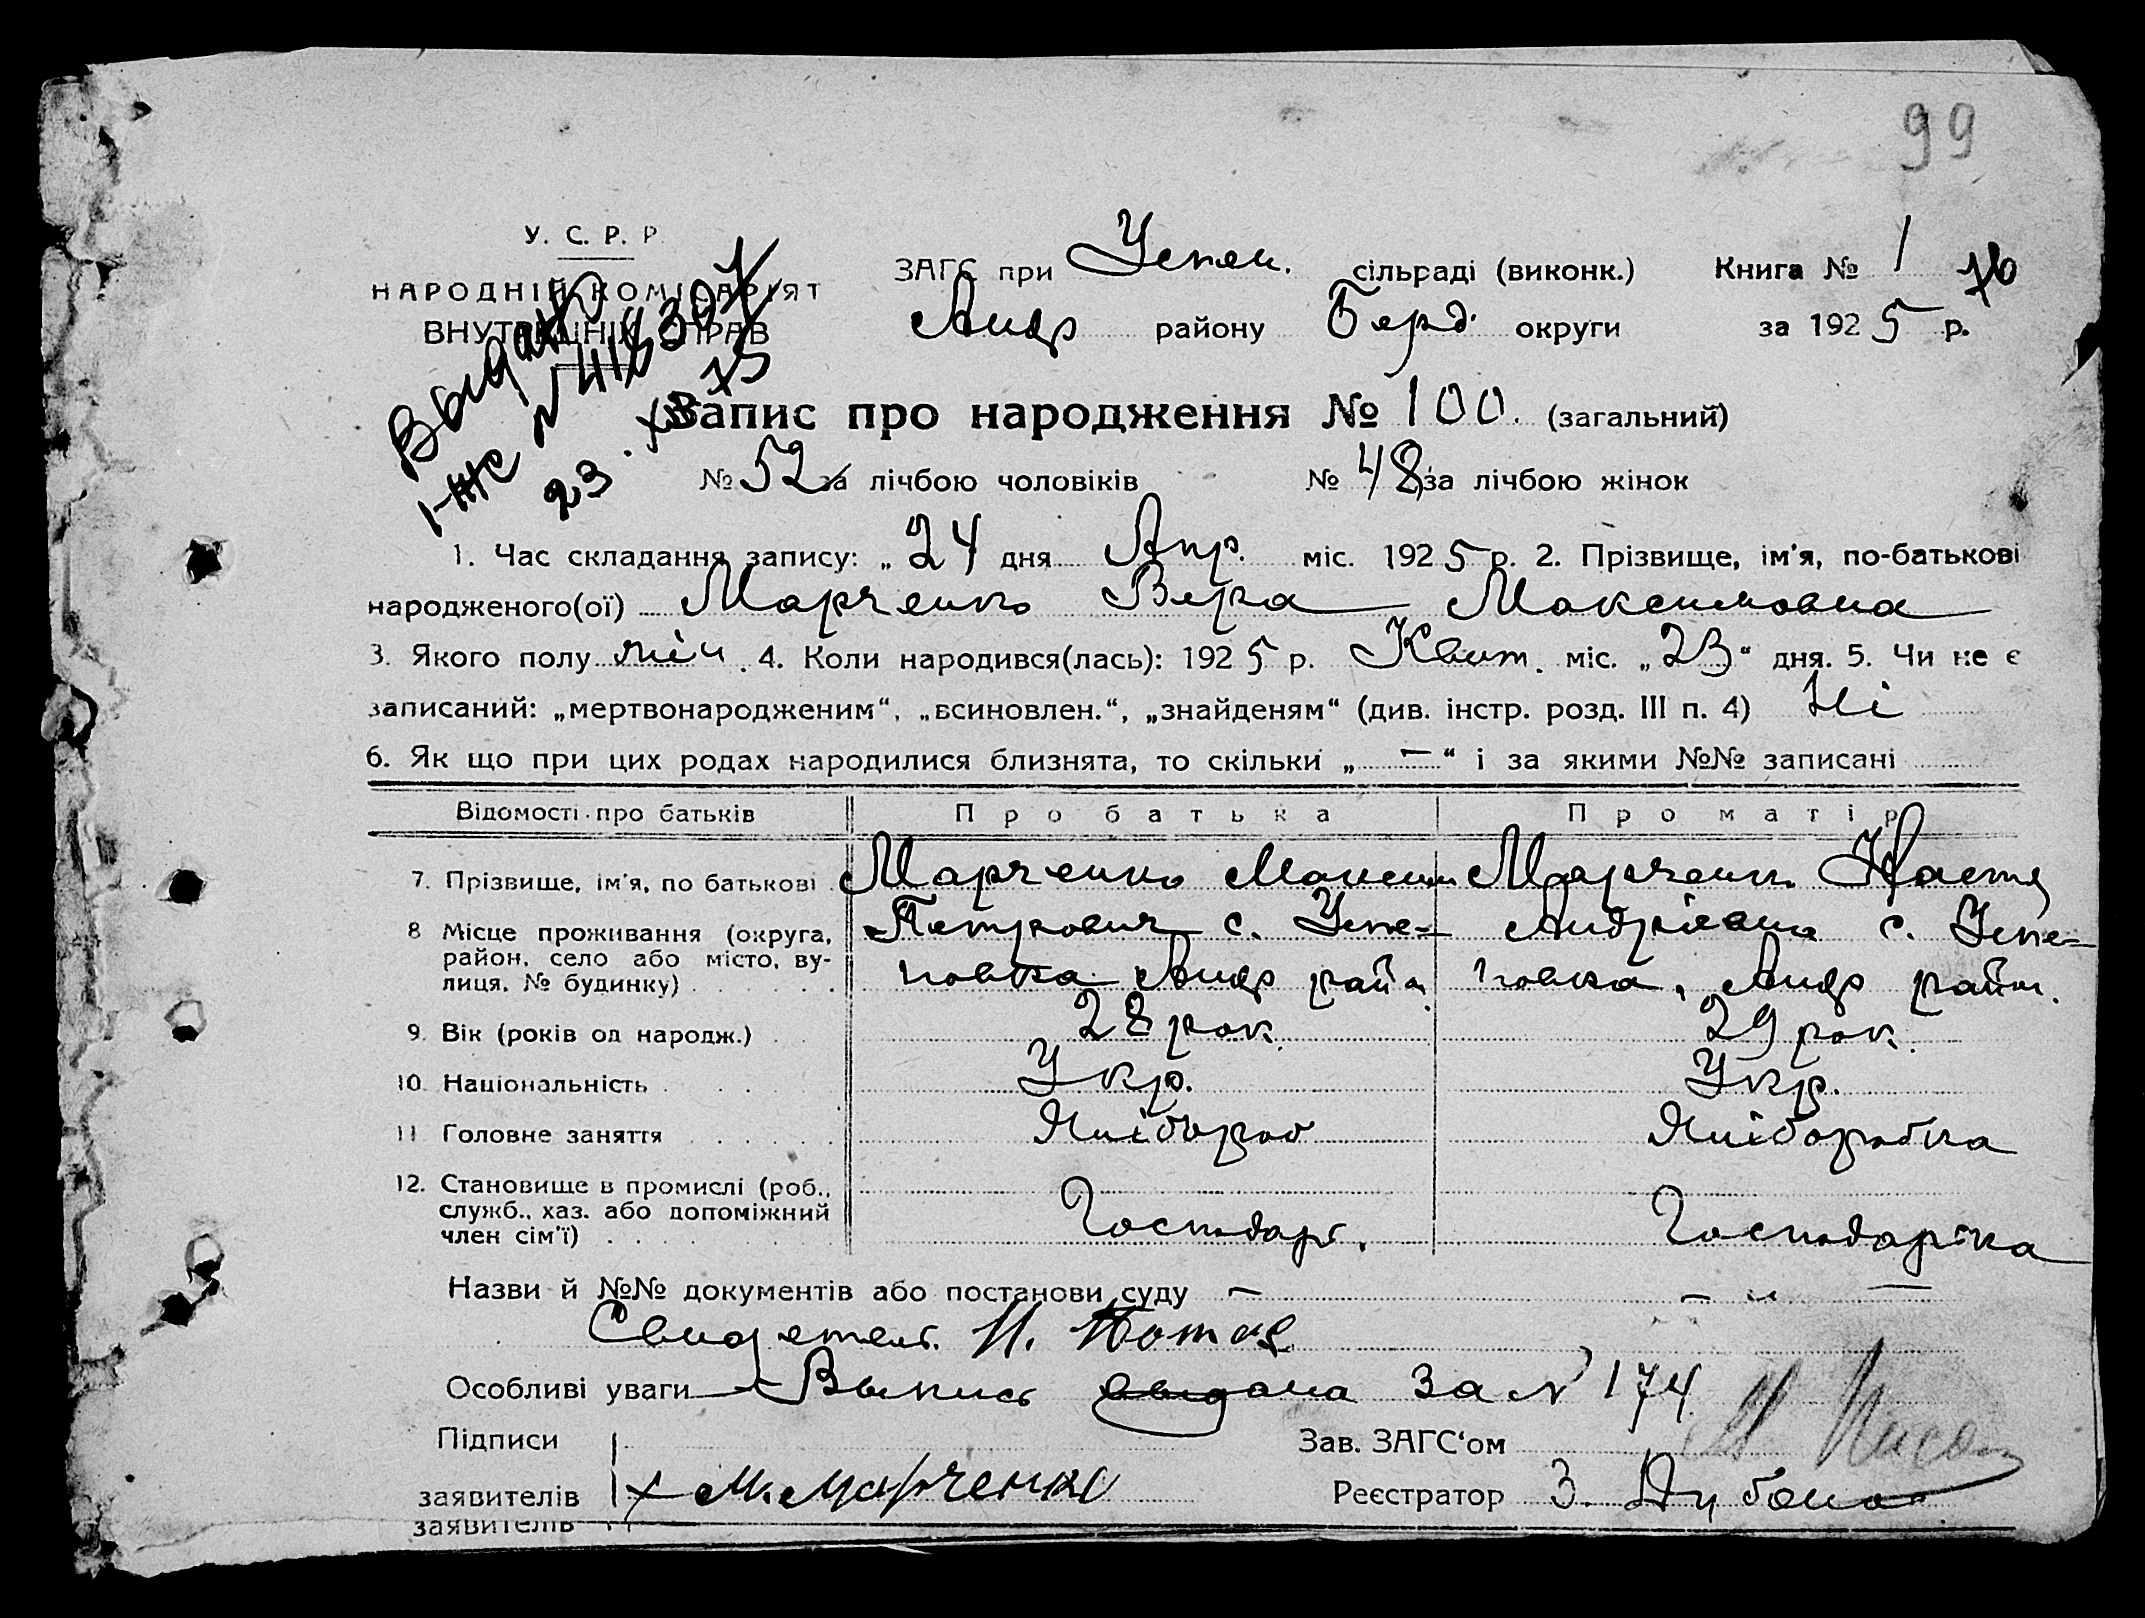 99
У. С. Р. Р.
НАРОДНІЙ КОМІСАРІЯТ
ВНУТРІШНІХ СПРАВ
ЗАГС при Успен. сільраді (виконк.) Книга № 1
Андр району Берд. округи за 1925 р.
Выдано
I-ЖС №
23
Запис про народження № 100. (загальний)
№ 52 за лічбою чоловіків № 48 за лічбою жінок
1. Час складання запису: „24 дня Апр. міс. 1925 р. 2. Прізвище, ім'я, по-батькові
народженого(ої) Марченко Вера Максимовна
3. Якого полу жіч. 4. Коли народився(лась): 1925 р. Квит. міс. „23“ дня. 5. Чи не є
записаний: „мертвонародженим“, „всиновлен.“, „знайденям“ (див. інстр. розд. III п. 4) Ні
6. Як що при цих родах народилися близнята, то скільки „—“ і за якими №№ записані
Відомості про батьків Про батька Про матір
7. Прізвище, ім'я, по батькові Марченко Максим Марченко Настя
8 Місце проживання (округа, Петрович с. Успе= Андріевна с. Успе=
район, село або місто, ву- новка Андр район новка, Андр район.
лиця, № будинку)
9. Вік (років од народж.) 28 рок. 29 рок.
10. Національність Укр. Укр.
11 Головне заняття Хліборob Хліборобка
12. Становище в промислі (роб.,
служб., хаз. або допоміжний Господарь. Господарька
член сім'ї)
Назви й №№ документів або постанови суду — — „ —
Свидетель. И.
Особливі уваги — Выпись выдана за № 174
Підписи Зав. ЗАГС‘ом
заявителів М. Марченко Реєстратор З.
заявителів